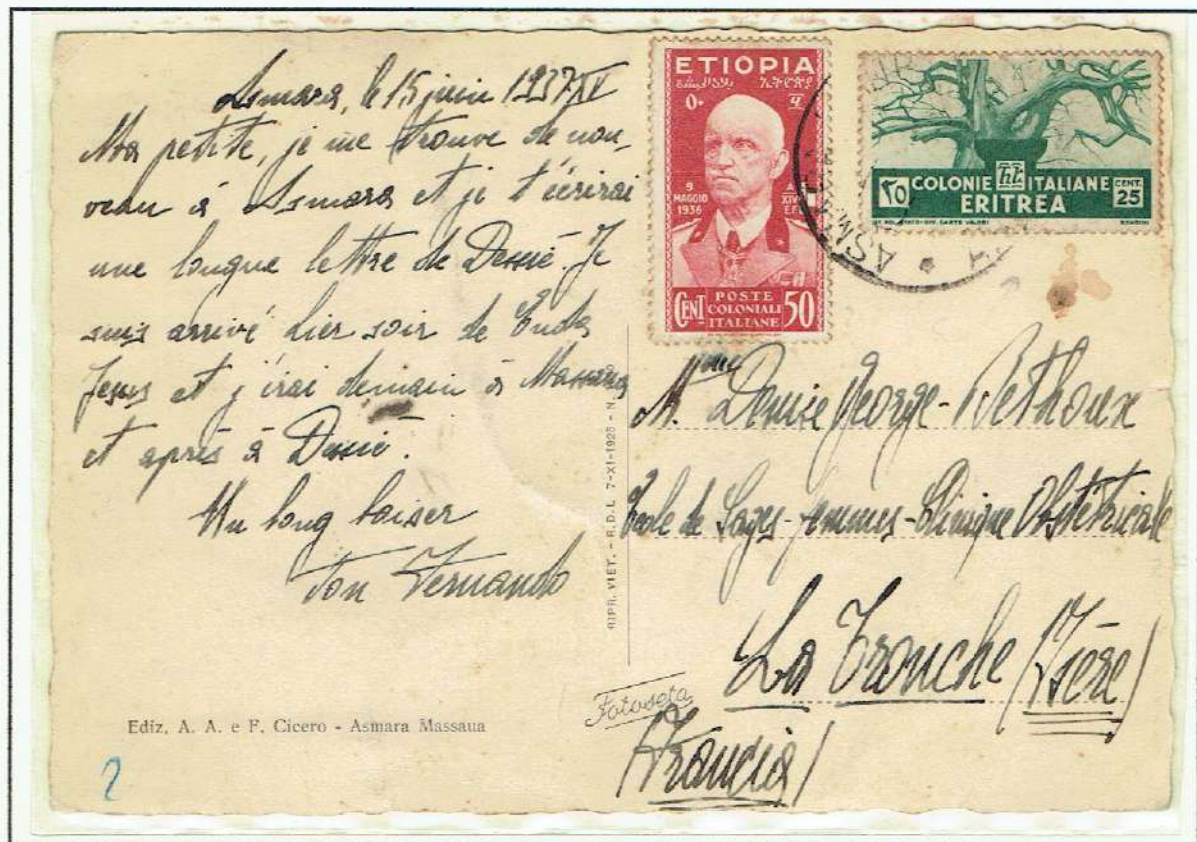 Asmara, le 15 juin 1937 XV
Ma petite, je me trouve de nou-
veau à Asmara et je t'écrirai
une longue lettre de Dessié. Je
suis arrivé hier soir de Enda
Jesus et j'irai demain à Massaua
et après à Dessié.
Un long baiser
Ton Fernando
Ediz. A. A. e F. Cicero - Asmara Massaua
2
RIPR. VIET. - R.D.L. 7-XI-1925 - N.
Fotoseta
ETIOPIA
ኢትዮጵያ
٥٠
9
MAGGIO
1936
XIV
E.F.
CENT
POSTE
COLONIALI
ITALIANE
50
٢٥
COLONIE ITALIANE
ERITREA
CENT.
25
M.me Denise George-Bethoux
Ecole de Sages-femmes-Clinique Obstétricale
La Tronche (Isère)
(Francia)